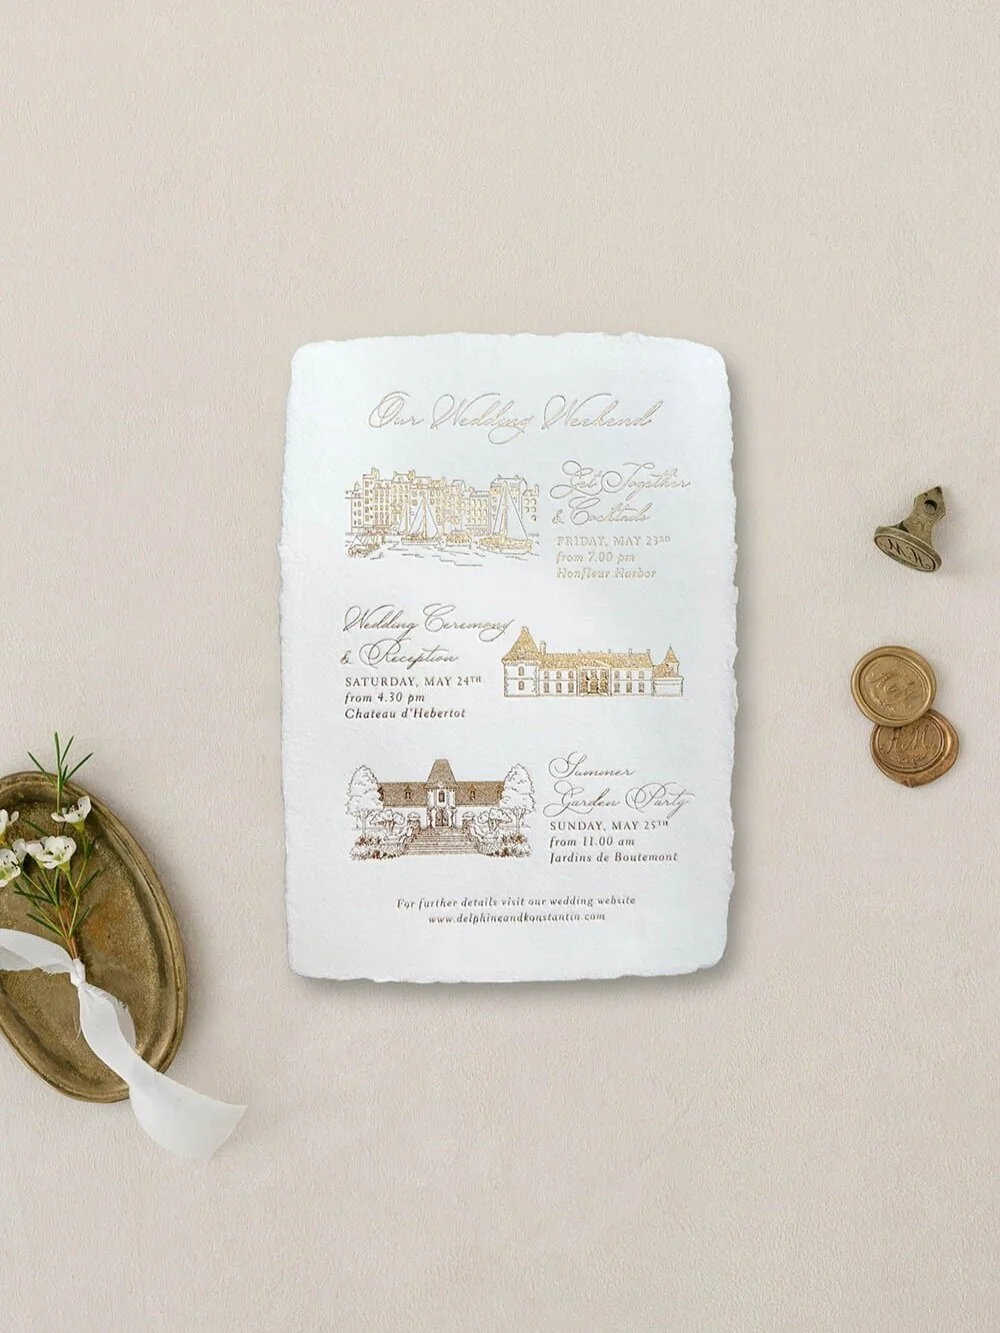 Our Wedding Weekend
Get Together
& Cocktails
FRIDAY, MAY 23RD
from 7.00 pm
Honfleur Harbor
Wedding Ceremony
& Reception
SATURDAY, MAY 24TH
from 4.30 pm
Chateau d'Hebertot
Summer
Garden Party
SUNDAY, MAY 25TH
from 11.00 am
Jardins de Boutemont
For further details visit our wedding website
www.delphineandkonstantin.com